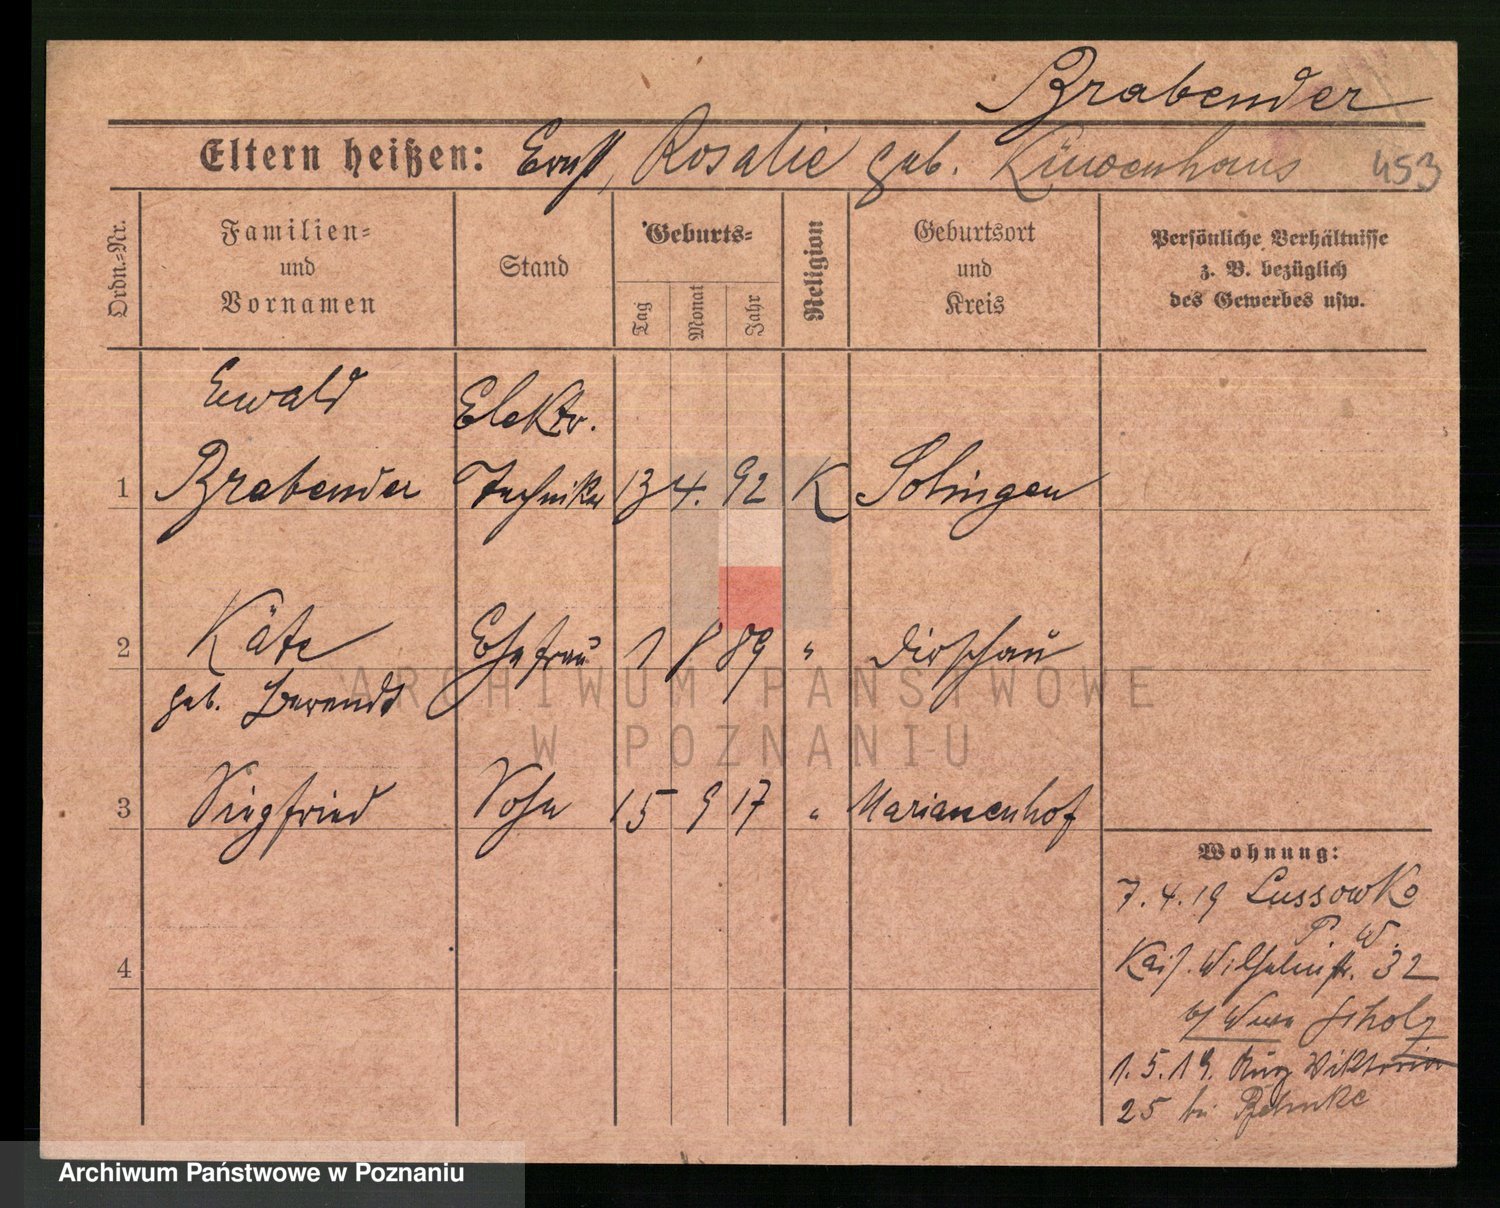 Brabender
Eltern heißen: Ernst, Rosalie geb. 453
Ordn.=Nr.
Familien=
und
Vornamen
Stand
Geburts=
Tag
Monat
Jahr
Religion
Geburtsort
und
Kreis
Persönliche Verhältnisse
z. B. bezüglich
des Gewerbes usw.
Ewald Elektr.
1 Brabender Techniker 13 4. 92 K Solingen
2 Käte Ehefrau 1 8 89 " Dirschau
geb. Berendt
3 Siegfried Sohn 15 9 17 " Marianenhof
4
Wohnung:
7. 4. 19 Lussowko
P. W.
Kais. Wilhelmstr. 32
b/ Wwe
1. 5. 19. Aug Viktoria
25 bei
ARCHIWUM PAŃSTWOWE
W POZNANIU
Archiwum Państwowe w Poznaniu